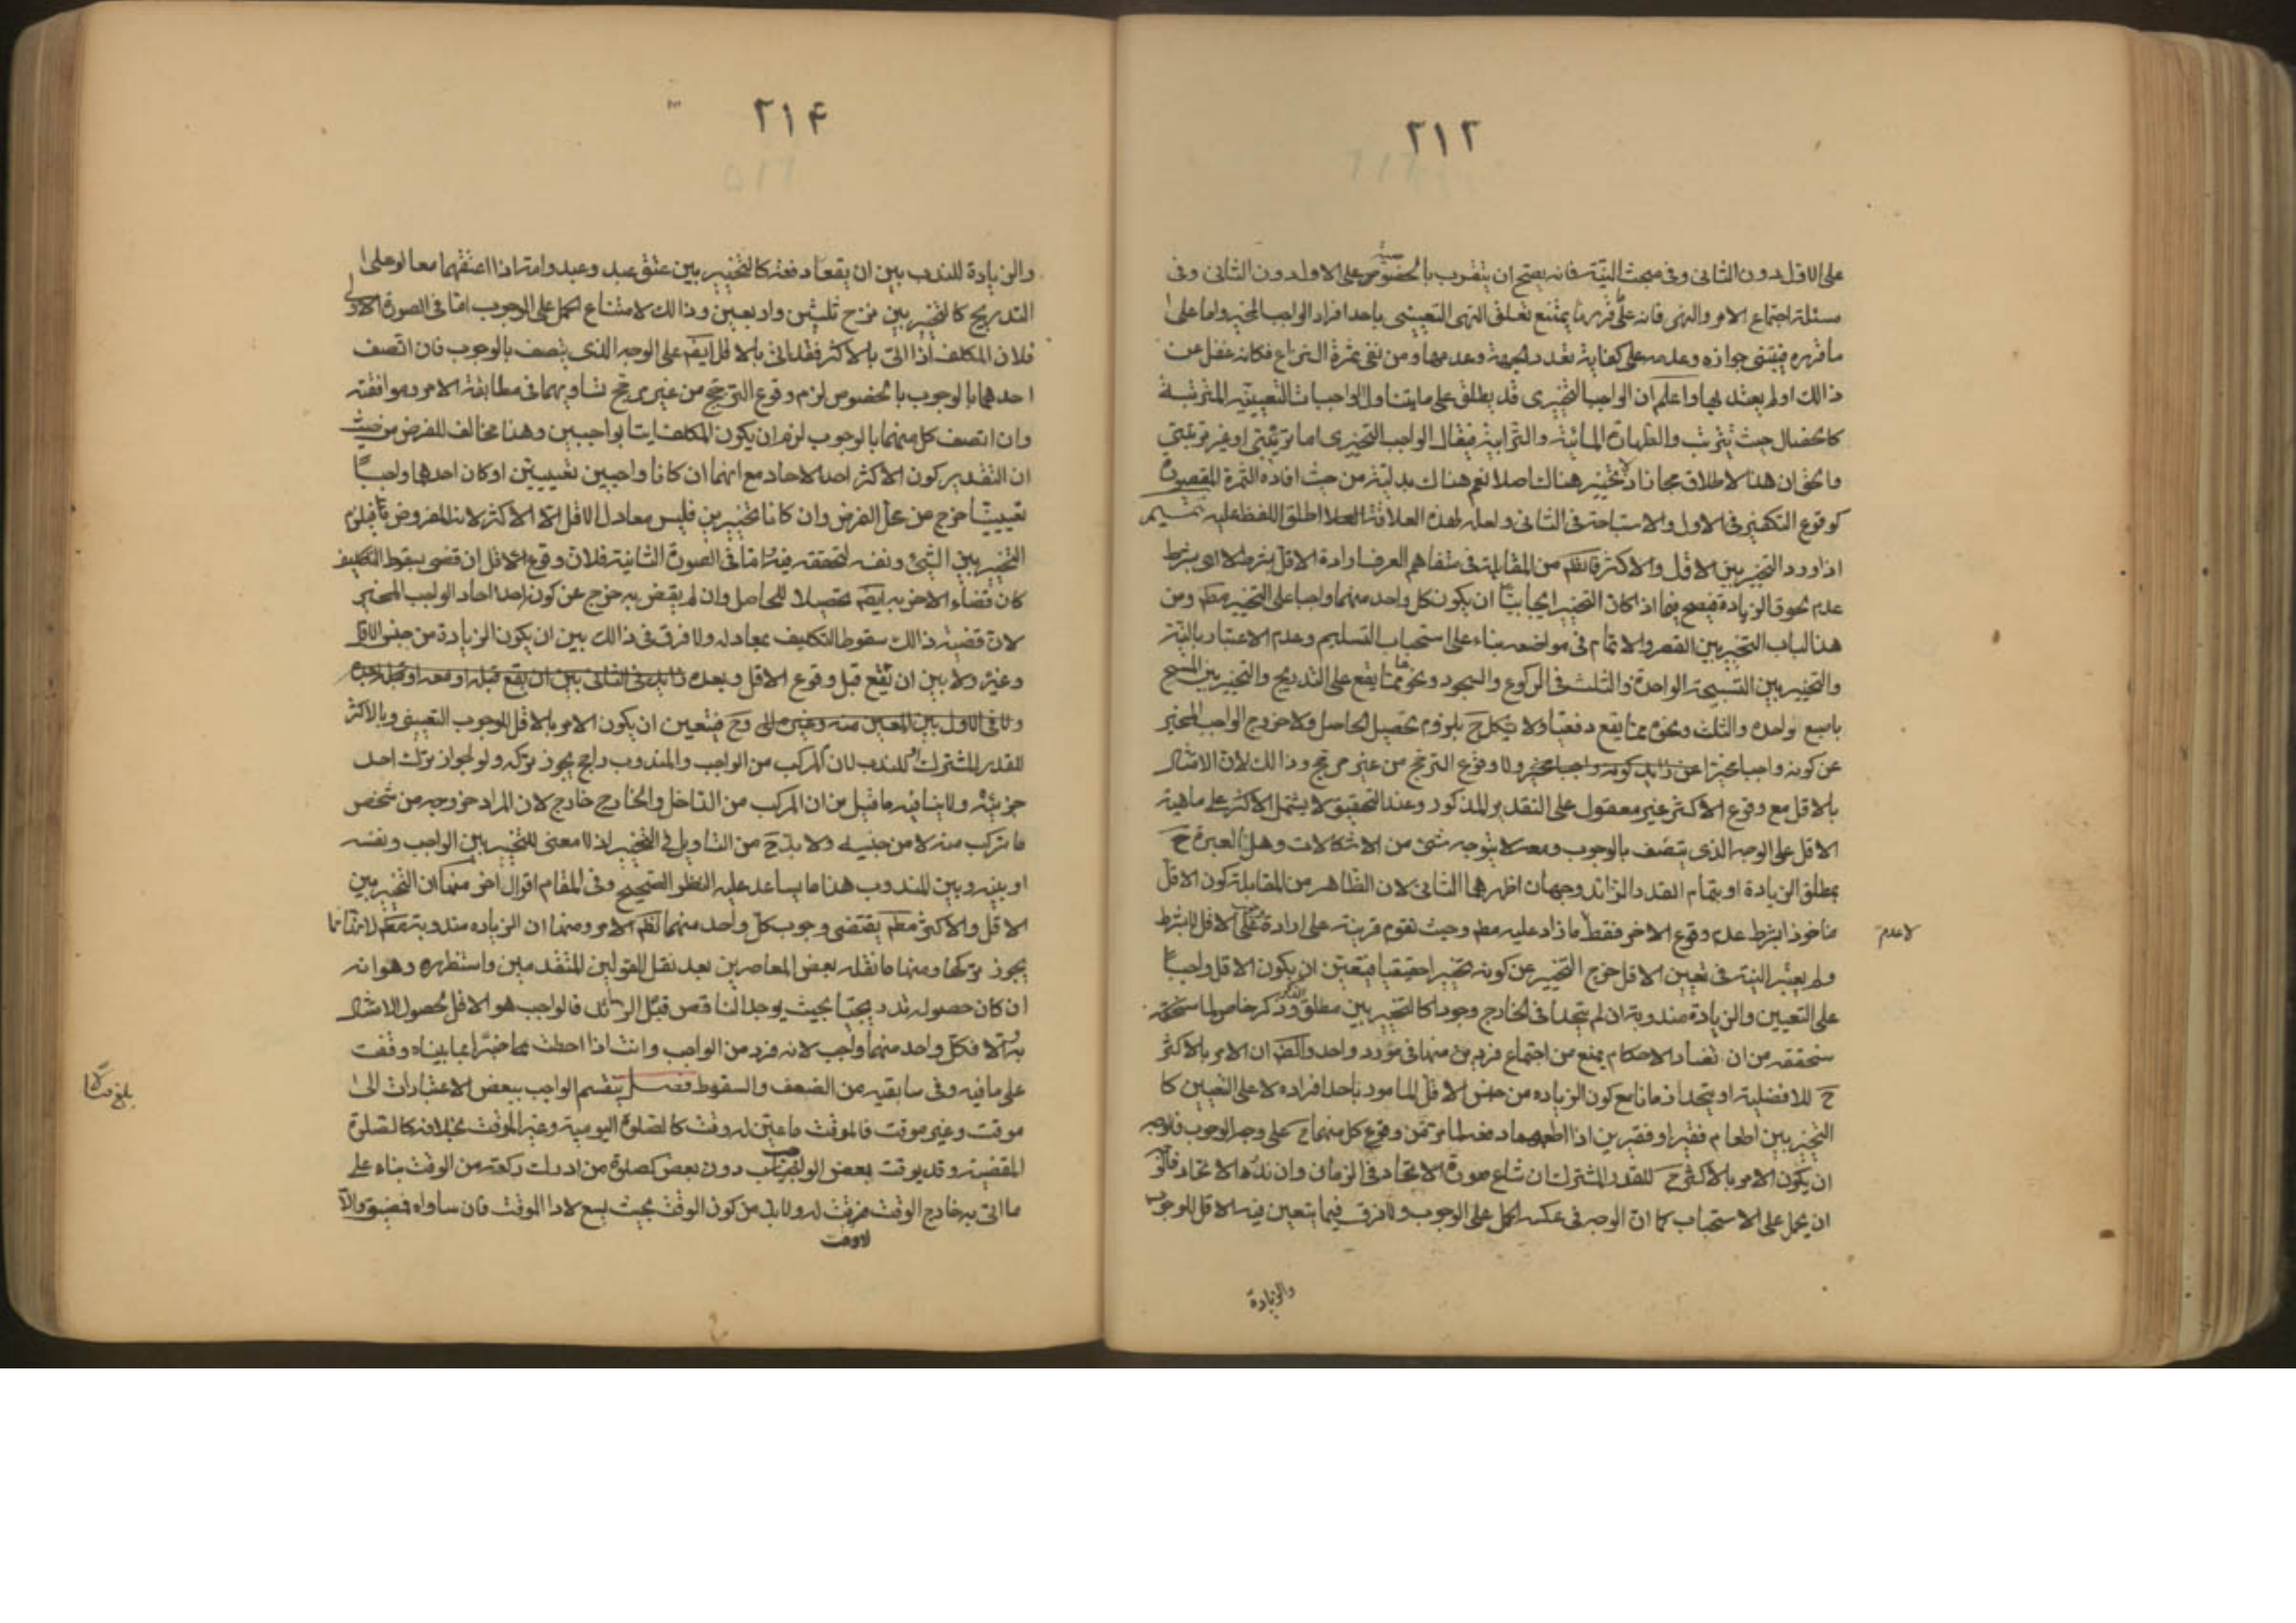 ٢١٢
على الاول دون الثانى وفى مبحث النيّة فانه يصحّ ان يتقرب بالخصوصية على الاول دون الثانى وفى
مسئلة اجتماع الامر والنهى فانه على ما قررنا يمتنع تعلق النهى التعيينى باحد افراد الواجب المخير واما على
ما قرره فيبتنى جوازه وعدمه على كفاية تعدد الجهة وعدمها ومن نفى ثمرة النزاع فكانه غفل عن
ذالك او لم يعتد بها واعلم ان الواجب التخيرى قد يطلق على ما يتناول الواجبات التعيينية المترتبة
كالخصال حيث تترتب والطهارة المائية والترابية فيقال الواجب التخيرى اما ترتيبى او غير ترتيبى
ولا يخفى ان هذا الاطلاق مجاز اذ لا تخيير هناك اصلا نعم هناك بدلية من حيث افاده الثمرة المقصودة
كوقوع التكفير فى الاول والاستباحة فى الثانى ولعله لهذه العلاقة اطلق اللفظ عليه تتميم
اذا ورد التخير بين الاقل والاكثر فالظم من المقابلة فى متفاهم العرف ارادة الاقل بشرط لا اى بشرط
عدم لحوق الزيادة فيصح فيما اذا كان التخير ايجابيا ان يكون كل واحد منهما واجبا على التخيير مطم ومن
هذا الباب التخير بين القصر والاتمام فى مواضعه بناء على استحباب التسليم وعدم الاعتبار بالنية
والتخيير بين التسبيحة الواحدة والثلث فى الركوع والسجود ونحوها مما يقع على التدريج والتخير بين المسح
باصبع واحدة والثلث ونحوه مما يقع دفعيا ولا يشكل ح بلزوم تحصيل الحاصل ولا خروج الواجب المخير
عن كونه واجبا مخيرا ولا وقوع الترجيح من غير مرجح وذالك لان الاتيان
بالاقل مع وقوع الاكثر غير معقول على التقدير المذكور وعند التحقيق لا يشتمل الاكثر على ماهية
الاقل على الوجه الذى يتصف بالوجوب ومعه لا يتوجه شئ من الاشكالات وهل العبرة ح
بمطلق الزيادة او بتمام القدر الزائد وجهان اظهرهما الثانى لان الظاهر من المقابلة كون الاقل
ماخوذا بشرط عدم وقوع الاخر فقط ما زاد عليه مطم وحيث تقوم قرينة على ارادة الاقل لا بشرط
لا عدم
ولم يعتبر النية فى تعيين الاقل خرج التخيير عن كونه تخييرا حقيقيا فيتعين ان يكون الاقل واجبا
على التعيين والزيادة مندوبة ان لم يتحدا فى الخارج وجودا كالتخير بين مطلق الذكر وذكر خاص لما ستحققه
سنحققه من ان تضاد الاحكام يمنع من اجتماع فردين منها فى مورد واحد والظم ان الامر بالاكثر
ح للافضلية او يتحدا زمانا مع كون الزياده من جنس الاقل المامور باحد افراده لا على التعيين كا
التخير بين اطعام فقير او فقيرين اذا اطعمهما دفعة لما مر من وقوع كل منهما ح على وجه الوجوب فالوجه
ان يكون الامر بالاكثر ح للقدر المشترك ان شاع صورة الاتحاد فى الزمان وان ندر الاتحاد فالاولى
ان يحمل على الاستحباب كما ان الوجه فى عكسه الحمل على الوجوب ولا فرق فيما يتعين فيه الاقل للوجوب
والزيادة
٢١۴
والزيادة للندب بين ان يقعا دفعة كالتخيير بين عتق عبد وعبد وامة اذا اعتقهما معا او على
التدريج كالتخير بين نزح ثلثين واربعين وذالك لامتناع الحمل على الوجوب امّا فى الصورة الاولى
فلان المكلف اذا اتى بالاكثر فقد اتى بالاقل ايضم على الوجه الذى يتصف بالوجوب فان اتصف
احدهما بالوجوب بالخصوص لزم وقوع الترجيح من غير مرجح تساويهما فى مطابقة الامر وموافقته
وان اتصف كل منهما بالوجوب لزم ان يكون المكلف اتيا بواجبين وهذا مخالف للفرض من حيث
ان التقدير كون الاكثر احد الاحاد مع انهما ان كانا واجبين تعيينين او كان احدهما واجبا
تعيينيا خرج عن محل الفرض وان كانا تخييرين فليس معادل الاقل الا الاكثر لانه المفروض فيلزم
التخير بين الشئ ونفسه لتحققه فيه امّا فى الصورة الثانية فلان وقوع الاقل ان قضى بسقوط التكليف
كان قضاء الاخر به ايضم تحصيلا للحاصل وان لم يقض به خرج عن كونه احد احاد الواجب المخير
لان قضية ذالك سقوط التكليف بمعادله ولا فرق فى ذالك بين ان يكون الزيادة من جنس الاقل
وغيره ولا بين ان تقع قبل وقوع الاقل وبعده
وح فيتعين ان يكون الامر بالاقل للوجوب التعيينى وبالاكثر
للقدر المشترك او للندب لان المركب من الواجب والمندوب راجح يجوز تركه ولو لجواز ترك احد
جزئيه ولا ينافيه ما قيل من ان المركب من الداخل والخارج خارج لان المراد خروجه من شخص
ما تركب منه لا من جنسه ولا بد ح من التاويل فى التخير اذ لا معنى للتخير بين الواجب ونفسه
او بينه وبين المندوب هذا ما يساعد عليه النظر الصحيح وفى المقام اقوال اخر منها ان التخير بين
الاقل والاكثر مطم يقتضى وجوب كل واحد منهما لظم الامر ومنها ان الزياده مندوبة مطم لانا
يجوز تركها ومنها ما نقله بعض المعاصرين بعد نقل القولين المتقدمين واستظهره وهو انه
ان كان حصوله تدريجيا بحيث يوجد الناقص قبل الزائد فالواجب هو الاقل لحصول الامتثال
به والا فكل واحد منهما واجب لانه فرد من الواجب وانت اذا احطت خبرا بما بيناه وقفت
على ما فيه وفى سابقيه من الضعف والسقوط فصل ينقسم الواجب ببعض الاعتبارات الى
موقت وغير موقت فالموقت ما عين له وقت كالصلوة اليومية وغير الموقت بخلافه كالصلوة
المقضية وقد يوقت بعض الواجب دون بعض كصلوة من ادرك ركعة من الوقت بناء على
ما اتى به خارج الوقت فرقت له ولا بد من كون الوقت بحيث يسع لادا الموقت فان ساواه فمضيق والا